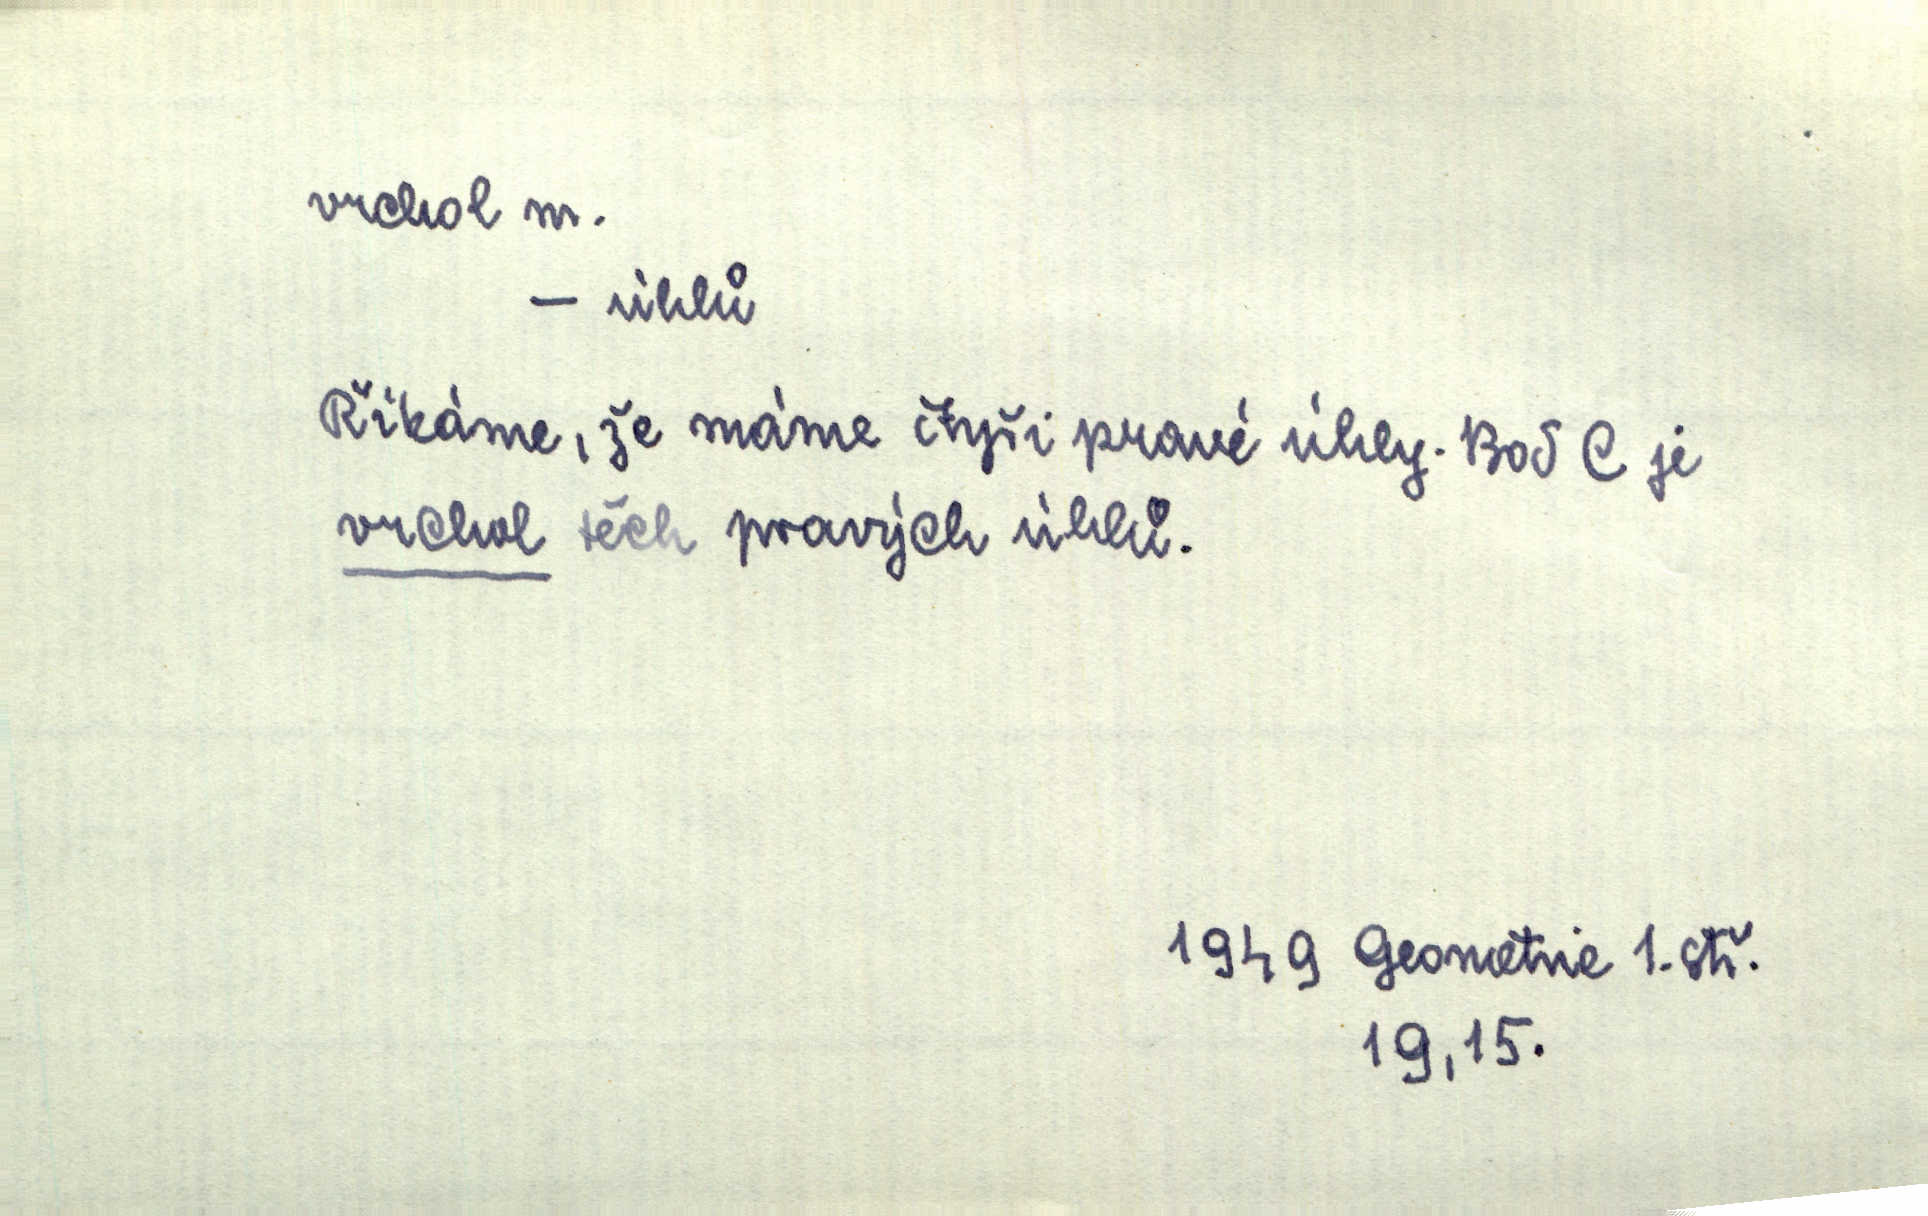 vrchol m.
– úhlů
Říkáme, že máme čtyři pravé úhly. Bod C je
vrchol těch pravých úhlů.
1949 Geometrie 1. stř.
19,15.